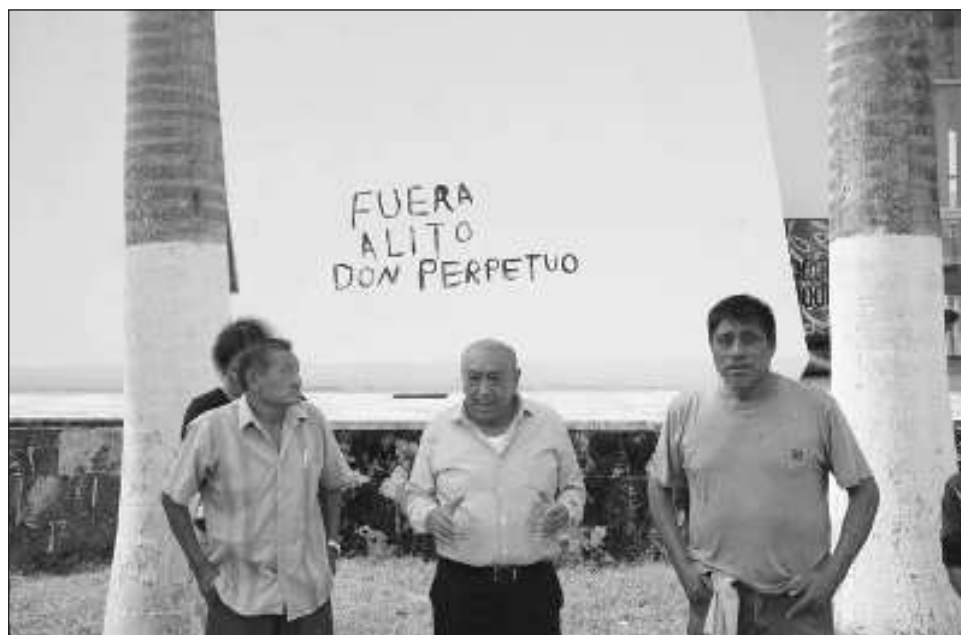 FUERA
ALITO
DON PERPETUO